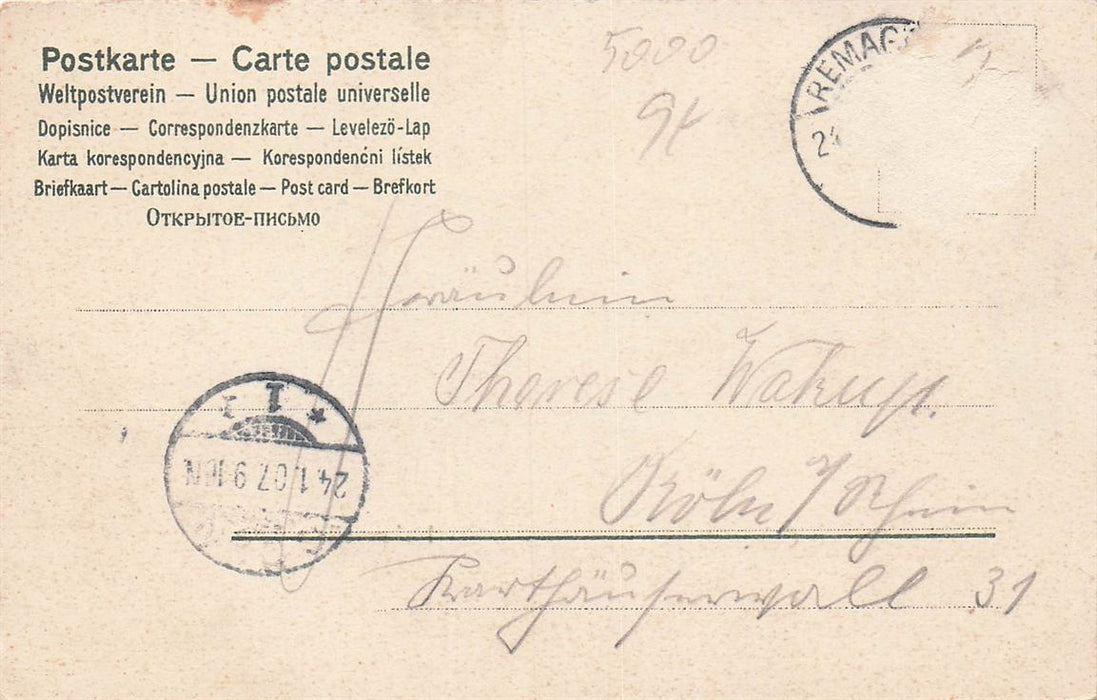 Postkarte — Carte postale
Weltpostverein — Union postale universelle
Dopisnice — Correspondenzkarte — Levelezö-Lap
Karta korespondencyjna — Korespondenćni lístek
Briefkaart — Cartolina postale — Post card — Brefkort
Открытое-письмо
5000
REMAG
24
Fräulein
Therese
Köln / Rhein
Karthäuserwall 31
* 1
24.1.07.9-10N